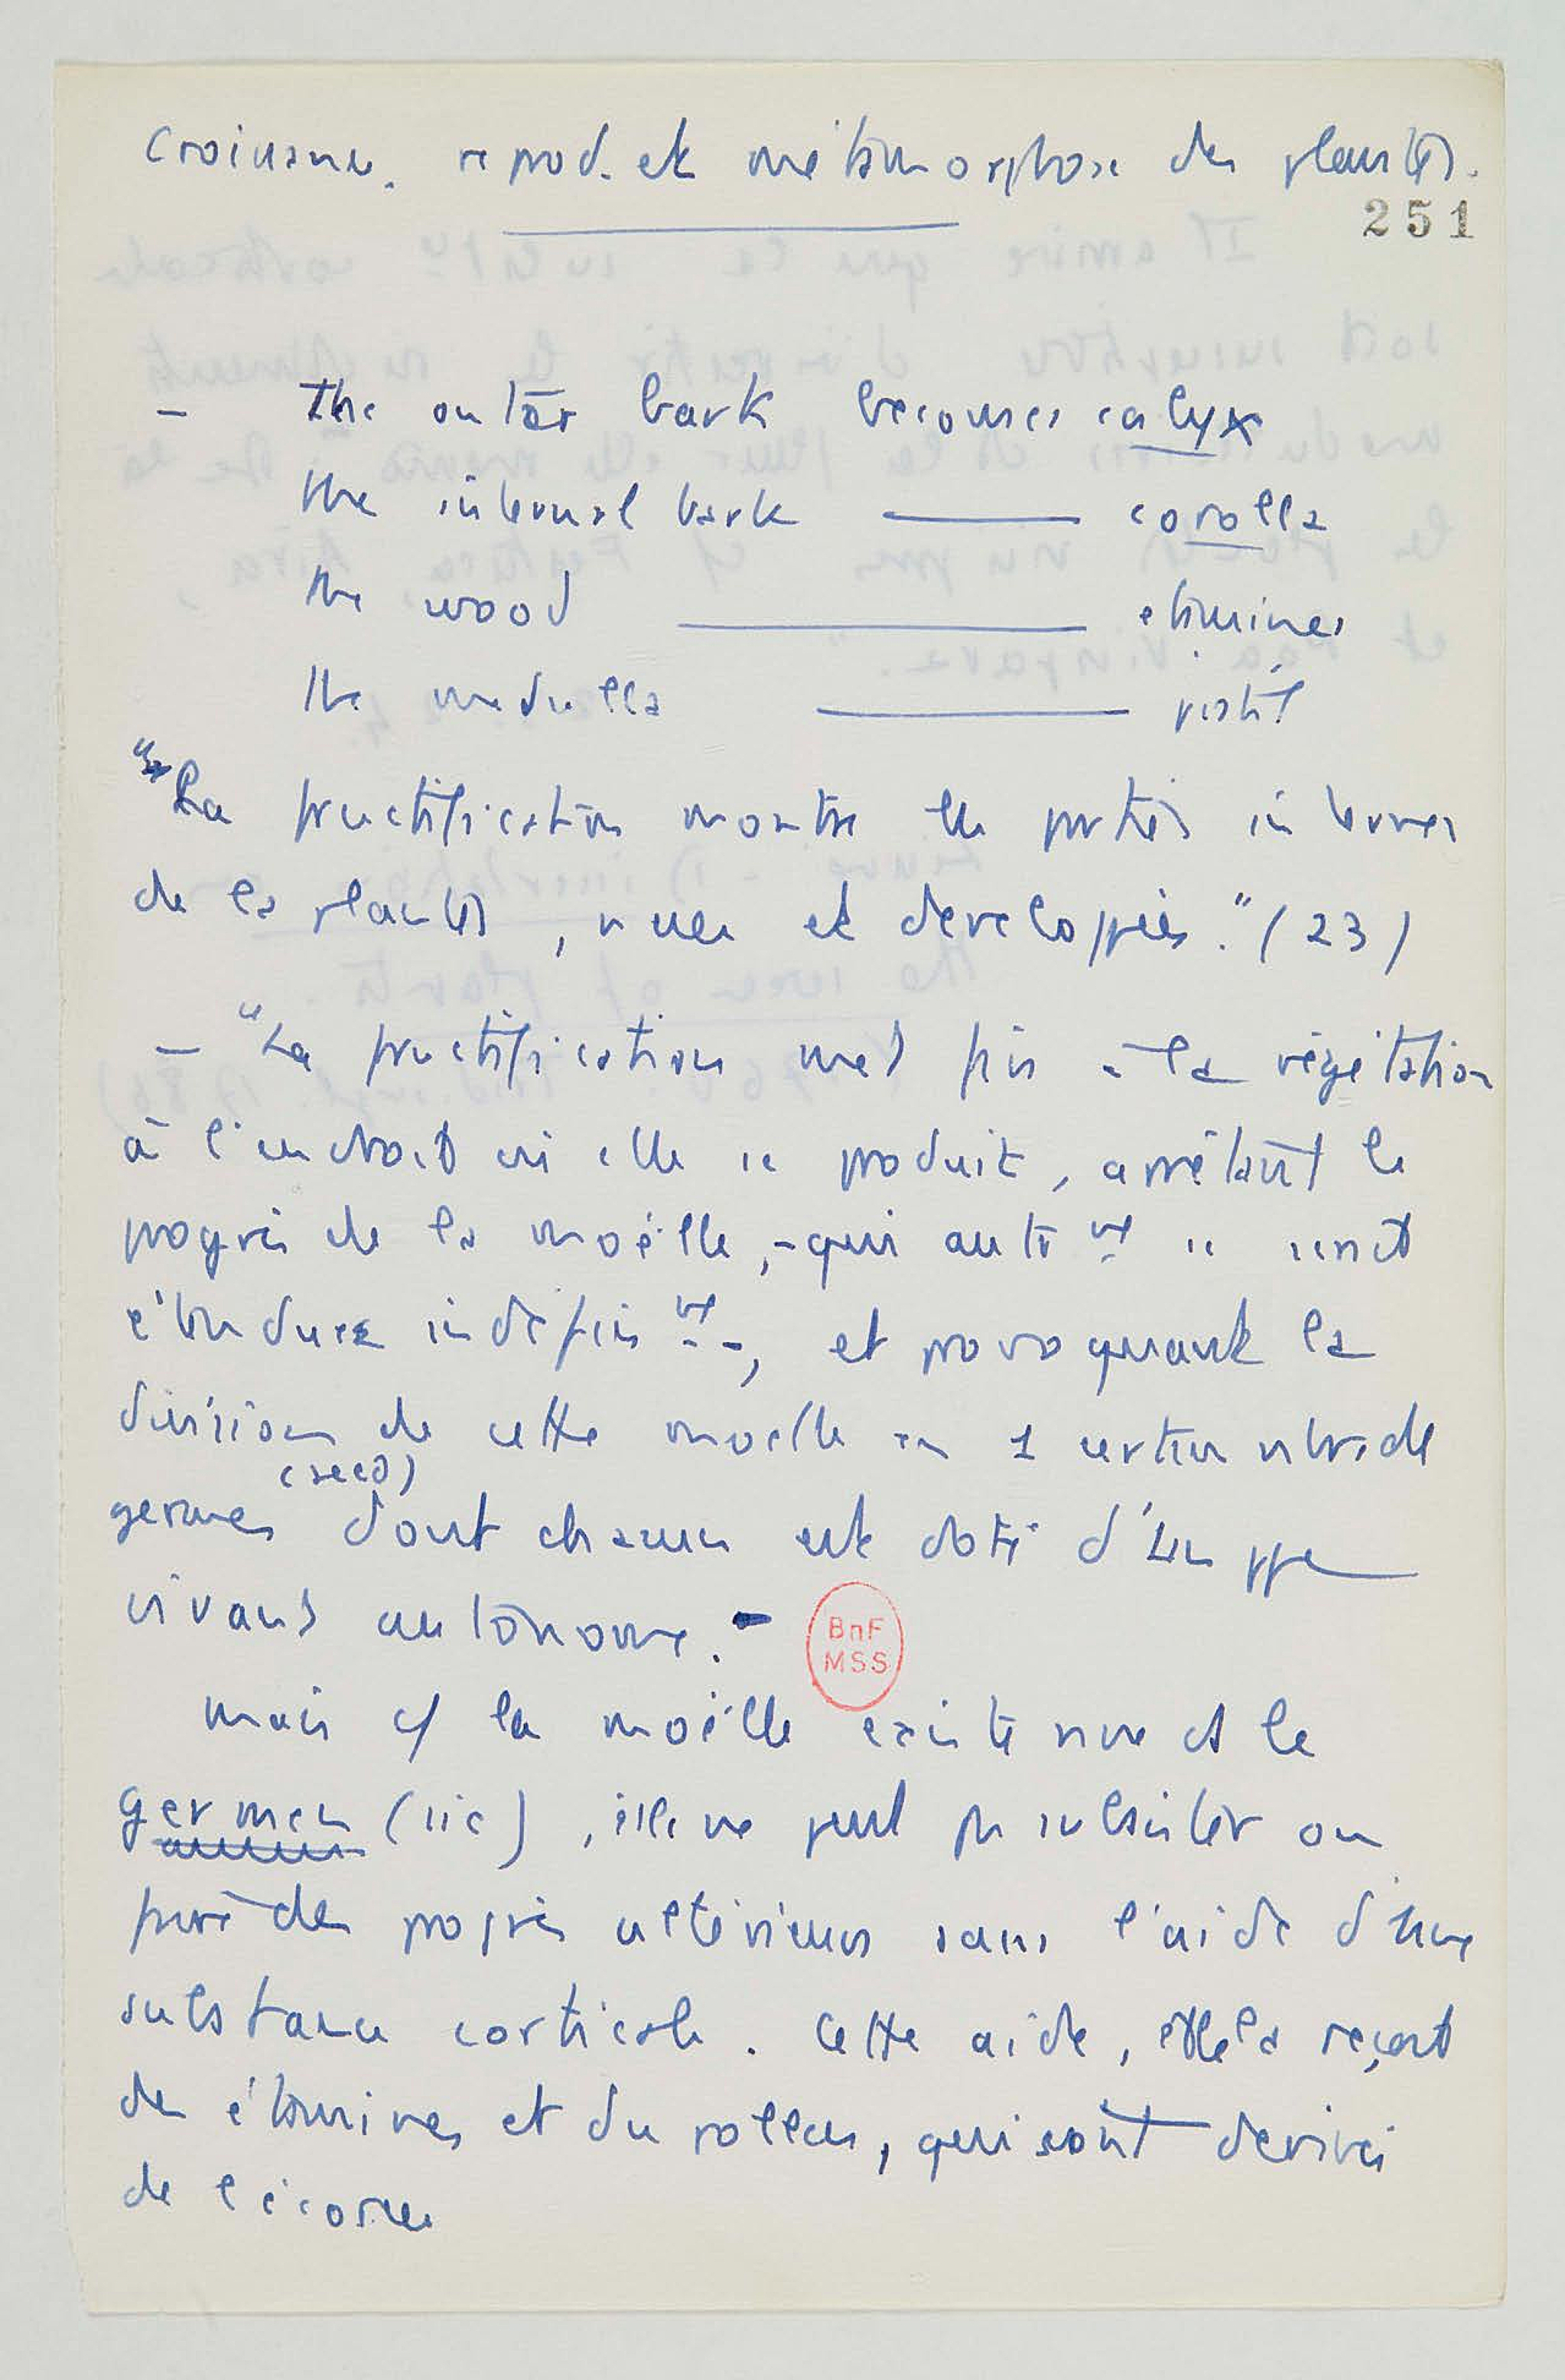 Croissance. reprod. et métamorphose des plantes.
251
- The outer bark becomes calyx
the internal bark —— corolla
the wood —— étamines
the medulla —— pistil
"La fructification montre les parties internes
de la plante, nues et developpées." (23)
- "La fructification met fin à la végétation
à l'endroit où elle se produit, arrêtant le
progrès de la moëlle, - qui autrt se serait
étendue indéfinit -, et provoquant la
division de cette moelle en 1 certain nbre de
(seed)
germes dont chacun est doté d'un ppe
vivant autonome. -
mais cf la moëlle existe nue ds le
germen (sic), elle ne peut pas subsister ou
faire des progrès ultérieurs sans l'aide d'une
substance corticale. Cette aide, elle la reçoit
des étamines et du pollen, qui sont dérivés
de l'écorce
BnF
MSS